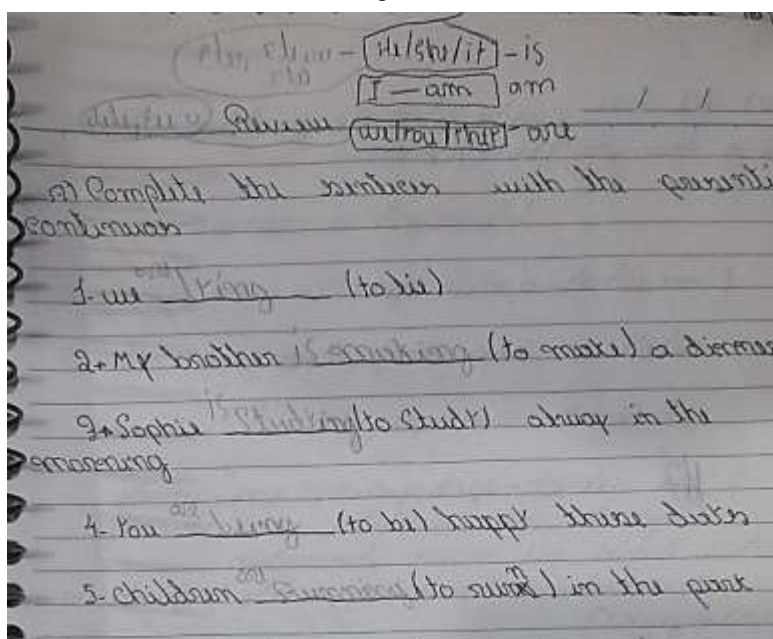 He/she/it - is
I - am am
/ /
Review we/you/they - are
a) Complete the sentences with the presente
continuos
1- we are lying (to lie)
2- My brother is making (to make) a dinner
3- Sophie is studying (to study) always in the
morning
4- You are being (to be) happy these
5- children are running (to run) in the park